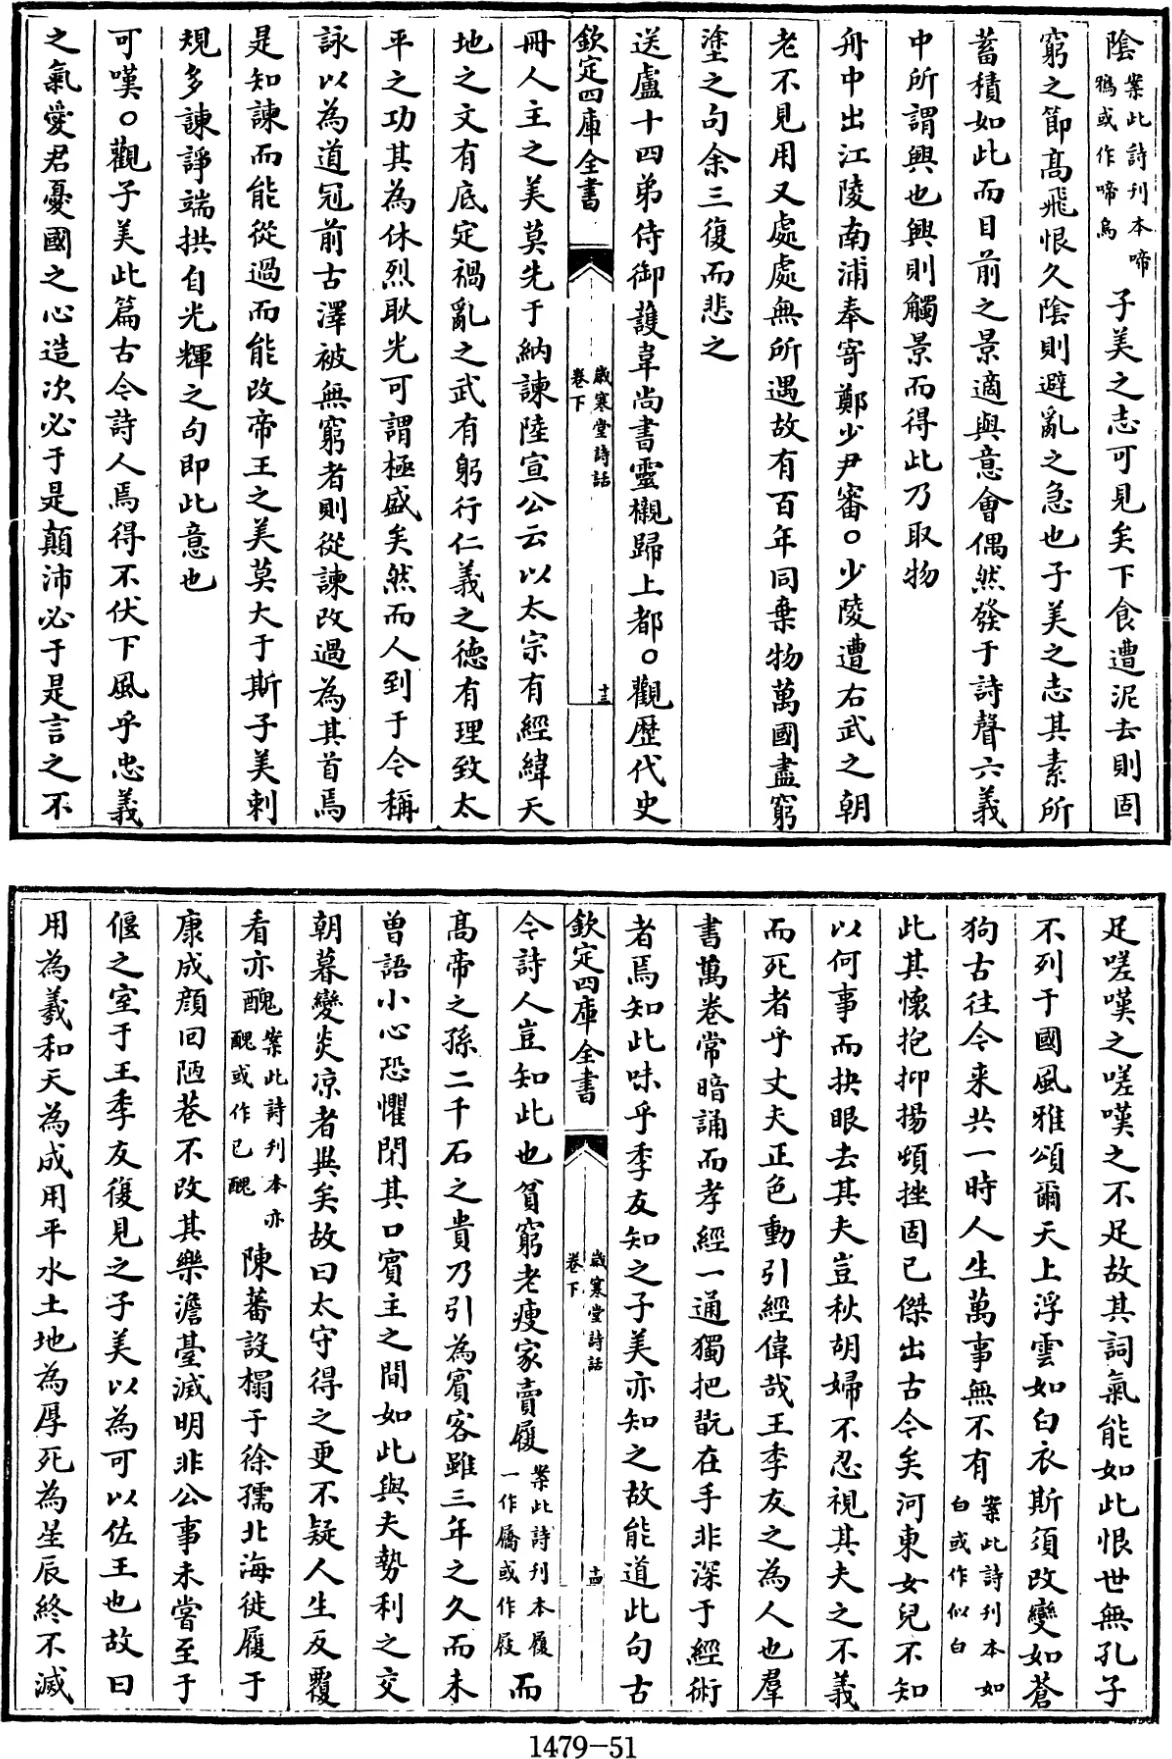 陰案此詩刊本啼鵶或作啼烏子美之志可見矣下食遭泥去則固
窮之節高飛恨久陰則避亂之急也子美之志其素所
蓄積如此而目前之景適與意會偶然發于詩聲六義
中所謂興也興則觸景而得此乃取物
舟中出江陵南浦奉寄鄭少尹審○少陵遭右武之朝
老不見用又處處無所遇故有百年同棄物萬國盡窮
塗之句余三復而悲之
送盧十四弟侍御護韋尚書靈櫬歸上都○觀歴代史
欽定四庫全書
歲寒堂詩話
卷下
十三
冊人主之美莫先于納諫陸宣公云以太宗有經緯天
地之文有底定禍亂之武有躬行仁義之德有理致太
平之功其為休烈耿光可謂極盛矣然而人到于今稱
詠以為道冠前古澤被無窮者則從諫改過為其首焉
是知諫而能從過而能改帝王之美莫大于斯子美剌
規多諫諍端拱自光輝之句即此意也
可嘆○觀子美此篇古今詩人焉得不伏下風乎忠義
之氣愛君憂國之心造次必于是顛沛必于是言之不
足嗟嘆之嗟嘆之不足故其詞氣能如此恨世無孔子
不列于國風雅頌爾天上浮雲如白衣斯須改變如蒼
狗古往今来共一時人生萬事無不有案此詩刊本如白或作似白
此其懷抱抑揚頓挫固已傑出古今矣河東女兒不知
以何事而抉眼去其夫豈秋胡婦不忍視其夫之不義
而死者乎丈夫正色動引經偉哉王季友之為人也羣
書萬卷常暗誦而孝經一通獨把翫在手非深于經術
者焉知此味乎季友知之子美亦知之故能道此句古
欽定四庫全書
歲寒堂詩話
卷下
十四
今詩人豈知此也貧窮老瘦家賣履案此詩刊本履一作屩或作屐而
髙帝之孫二千石之貴乃引為賓客雖三年之久而未
曽語小心恐懼閉其口賓主之間如此與夫勢利之交
朝暮變炎凉者異矣故曰太守得之更不疑人生反覆
看亦醜案此詩刊本亦醜或作已醜陳蕃設榻于徐孺北海徙履于
康成顔回陋巷不改其樂澹臺滅明非公事未嘗至于
偃之室于王季友復見之子美以為可以佐王也故曰
用為羲和天為成用平水土地為厚死為星辰終不滅
1479-51